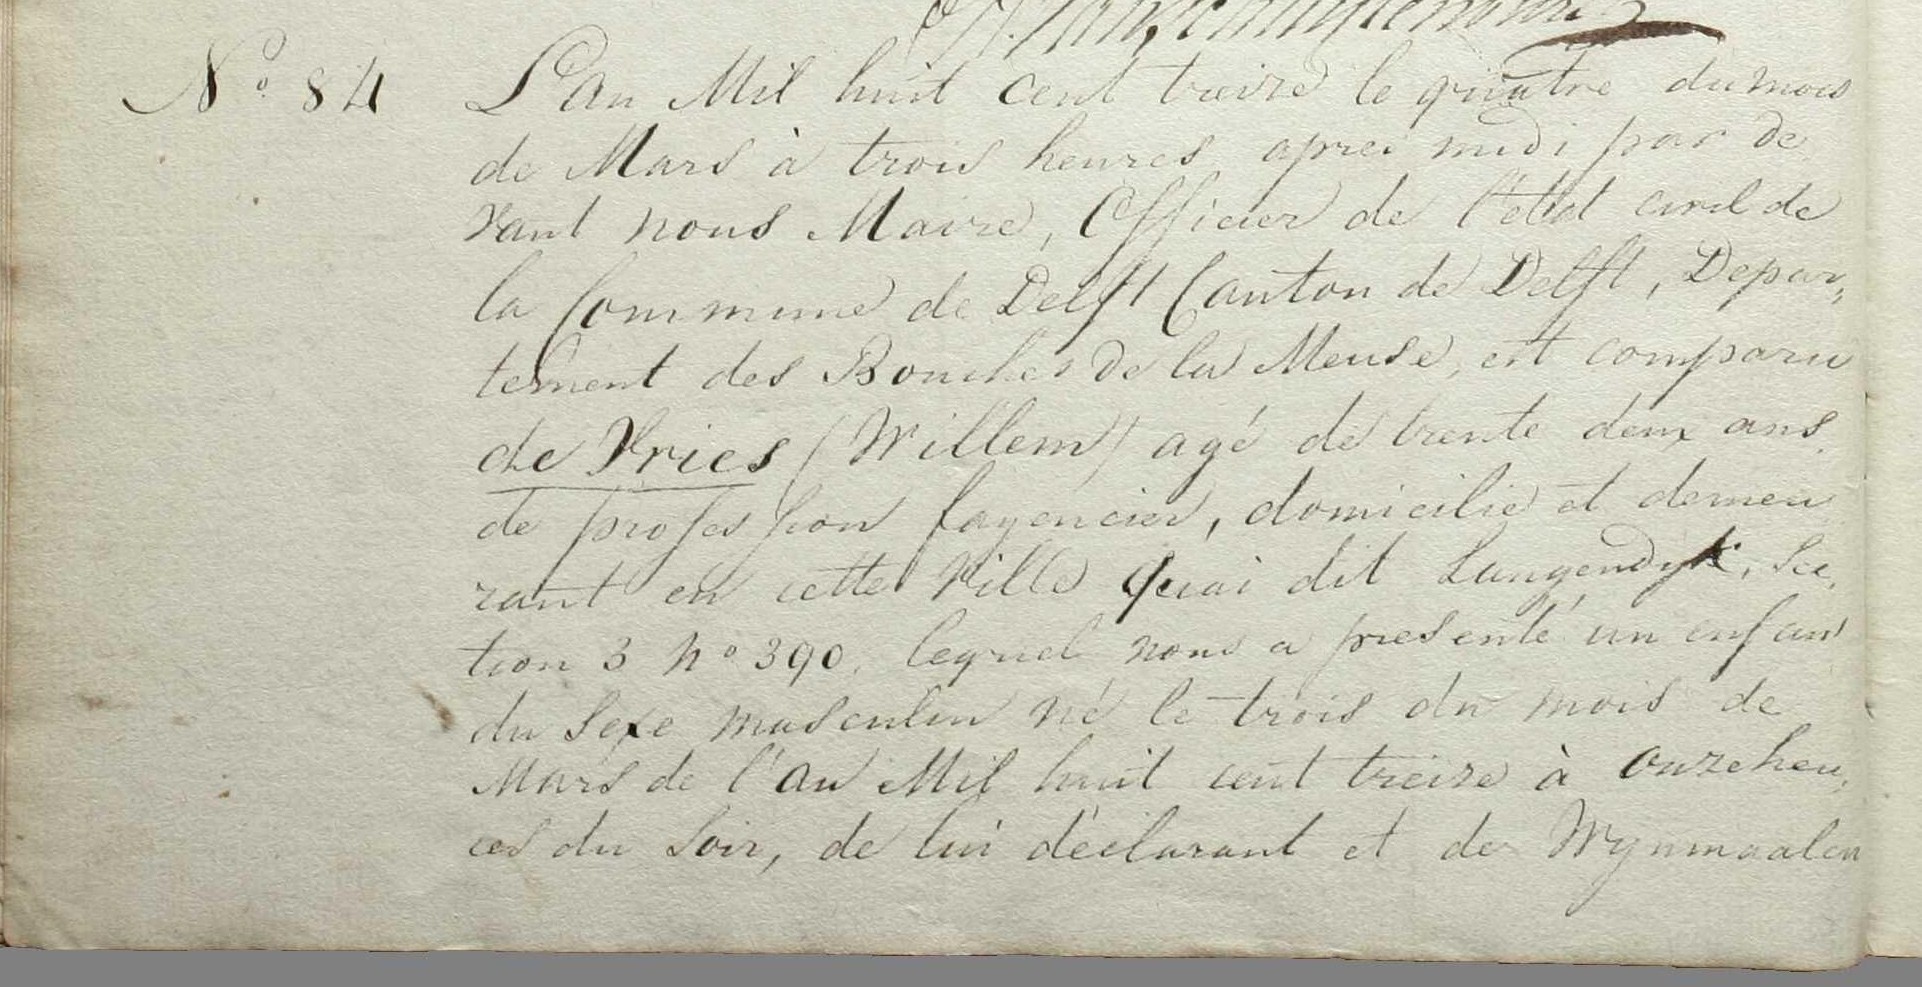 No. 84
L'an Mil huit cent treize le quatre du mois
de Mars à trois heures apres midi par de
vant nous Maire, Officier de l'état civil de
la Commune de Delft Canton de Delft, Depar„
tement des Bouches de la Meuse, est comparu
de Vries (Willem) agé de trente deux ans.
de profession fayencier, domicilié et demeu
rant en cette Ville Quai dit Langendyk, Sec„
tion 3 No 390. lequel nous a presenté un enfant
du Sexe masculin né le trois du mois de
Mars de l'an Mil huit cent treize à onze heu„
res du Soir, de lui déclarant et de Wynmaalen